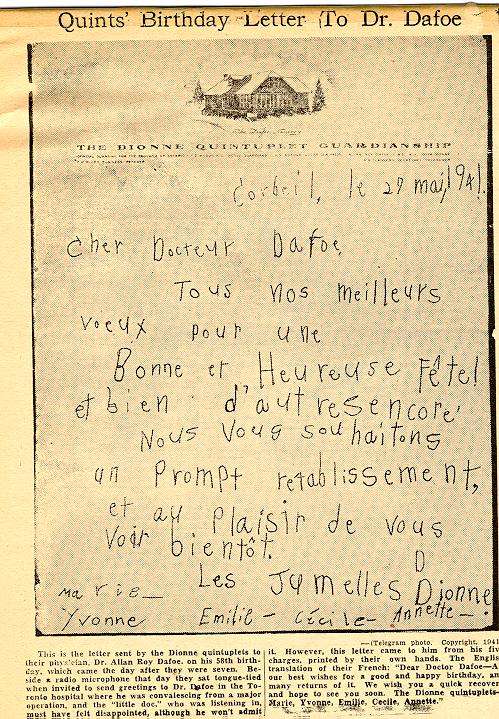 Quints' Birthday Letter To Dr. Dafoe
THE DIONNE QUINTUPLET GUARDIANSHIP
Corbeil, le 29 mai, 1941.
Cher Docteur Dafoe
Tous nos meilleurs
voeux pour une
Bonne et Heureuse Fête!
et bien d'autres encore
Nous Vous souhaitons
un Prompt retablissement,
et au Plaisir de vous
voir bientôt.
Les Jumelles Dionne
Marie —
Yvonne Emilie — Cécile — Annette —.
—(Telegram photo. Copyright, 1941
This is the letter sent by the Dionne quintuplets to
their physician, Dr. Allan Roy Dafoe, on his 58th birth-
day, which came the day after they were seven. Be-
side a radio microphone that day they sat tongue-tied
when invited to send greetings to Dr. Dafoe in the To-
ronto hospital where he was convalescing from a major
operation, and the "little doc," who was listening in,
must have felt disappointed, although he won't admit
it. However, this letter came to him from his five
charges, printed by their own hands. The English
translation of their French: "Dear Doctor Dafoe—A
our best wishes for a good and happy birthday, an
many returns of it. We wish you a quick recover
and hope to see you soon. The Dionne quintuplets—
Marie, Yvonne, Emilie, Cecile, Annette."